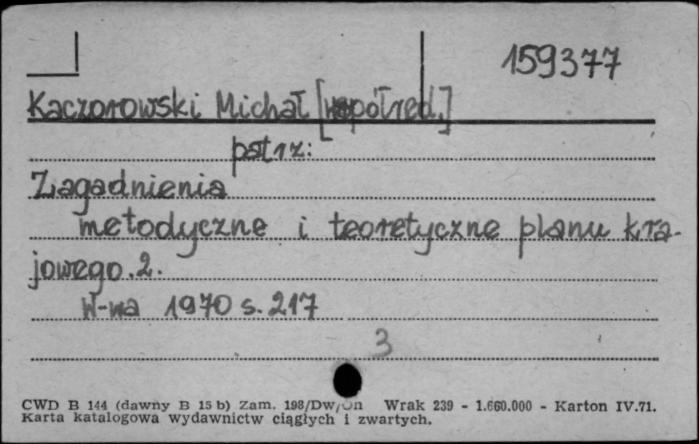 159377
Kaczorowski Michał [współred.]
patrz:
Zagadnienia
metodyczne i teoretyczne planu kra-
jowego. 2.
W-wa 1970 s. 217
3
CWD B 144 (dawny B 15 b) Zam. 198/Dw/Jn Wrak 239 - 1.660.000 - Karton IV.71.
Karta katalogowa wydawnictw ciągłych i zwartych.